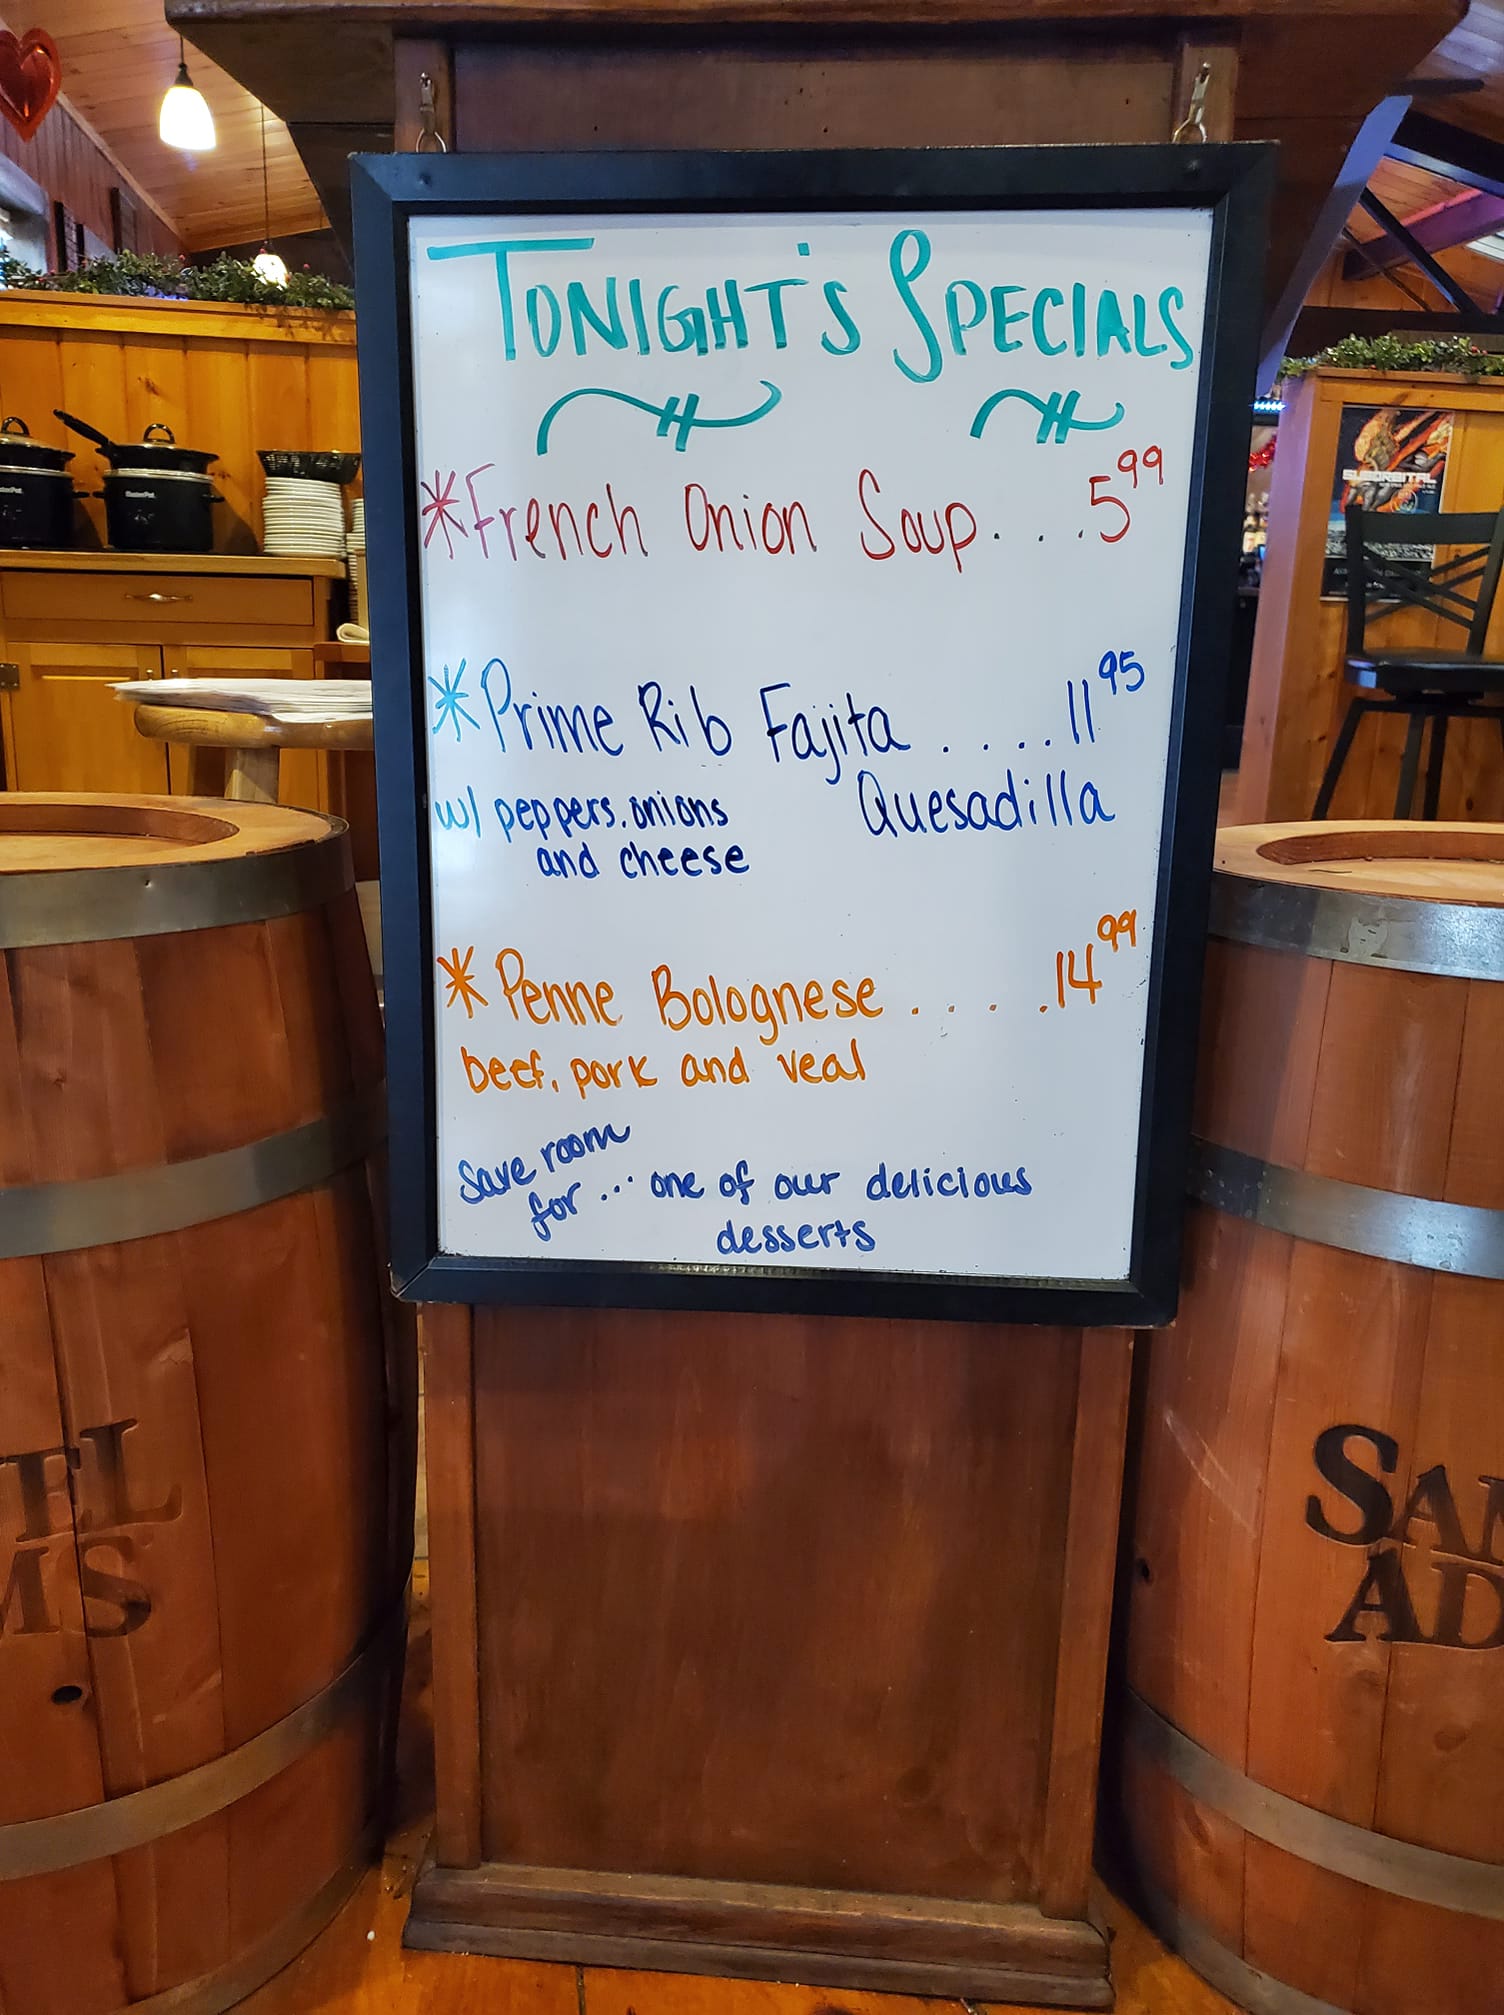 TONIGHT'S SPECIALS
*French Onion Soup...5.99
*Prime Rib Fajita ....11.95
Quesadilla
w/ peppers, onions
and cheese
*Penne Bolognese .....14.99
beef, pork and veal
Save room
for ... one of our delicious
desserts
SAM
AD
EL
MS